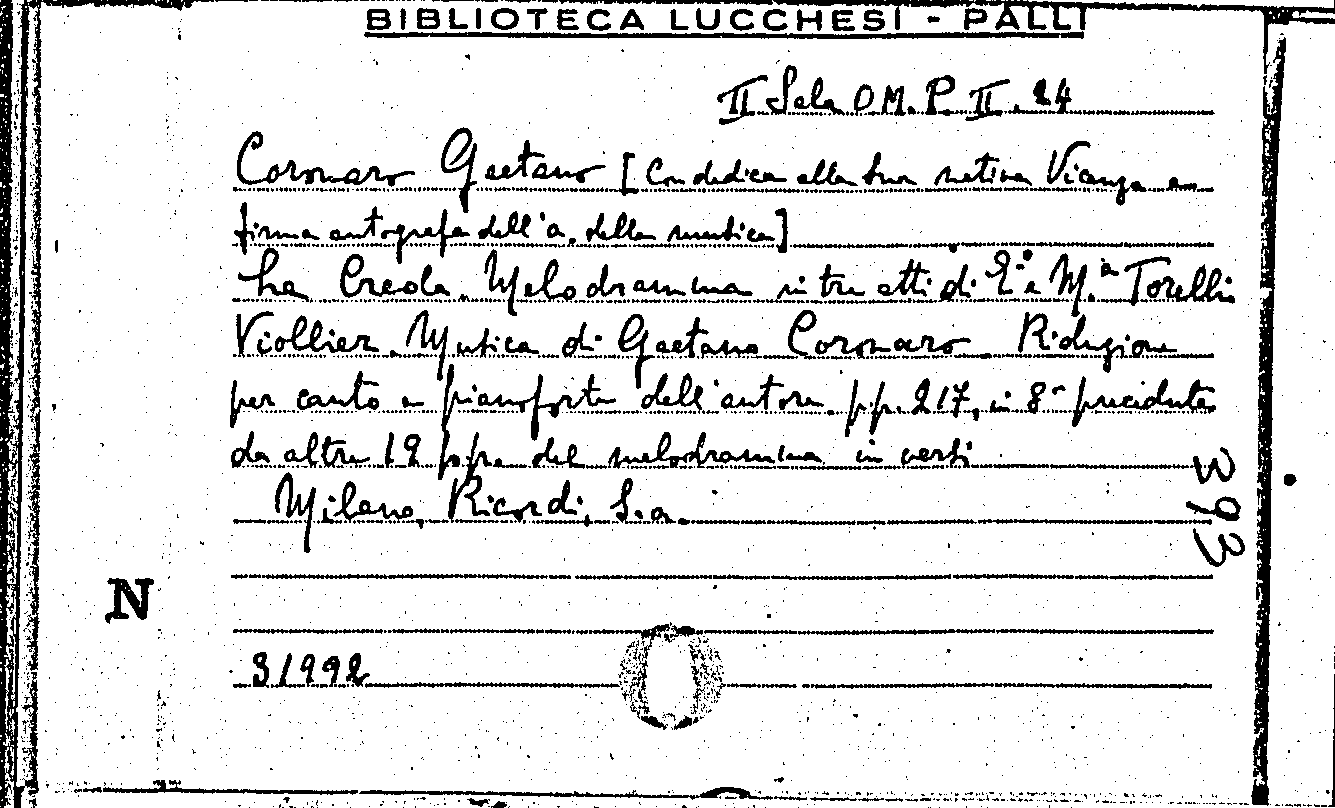 BIBLIOTECA LUCCHESI - PALLI
II Sala O M. P. II. 24
Coronaro Gaetano [Con dedica alla sua nativa Vicenza e
firma autografa dell'a. della musica]
La Creola. Melodramma in tre atti di E. M.a Torelli
Viollier. Musica di Gaetano Coronaro. Riduzione
per canto e pianoforte dell'autore. pp. 217, in 8° precedute
da altre 12 pp. del melodramma in versi
Milano, Ricordi, S.a.
393
N
31992